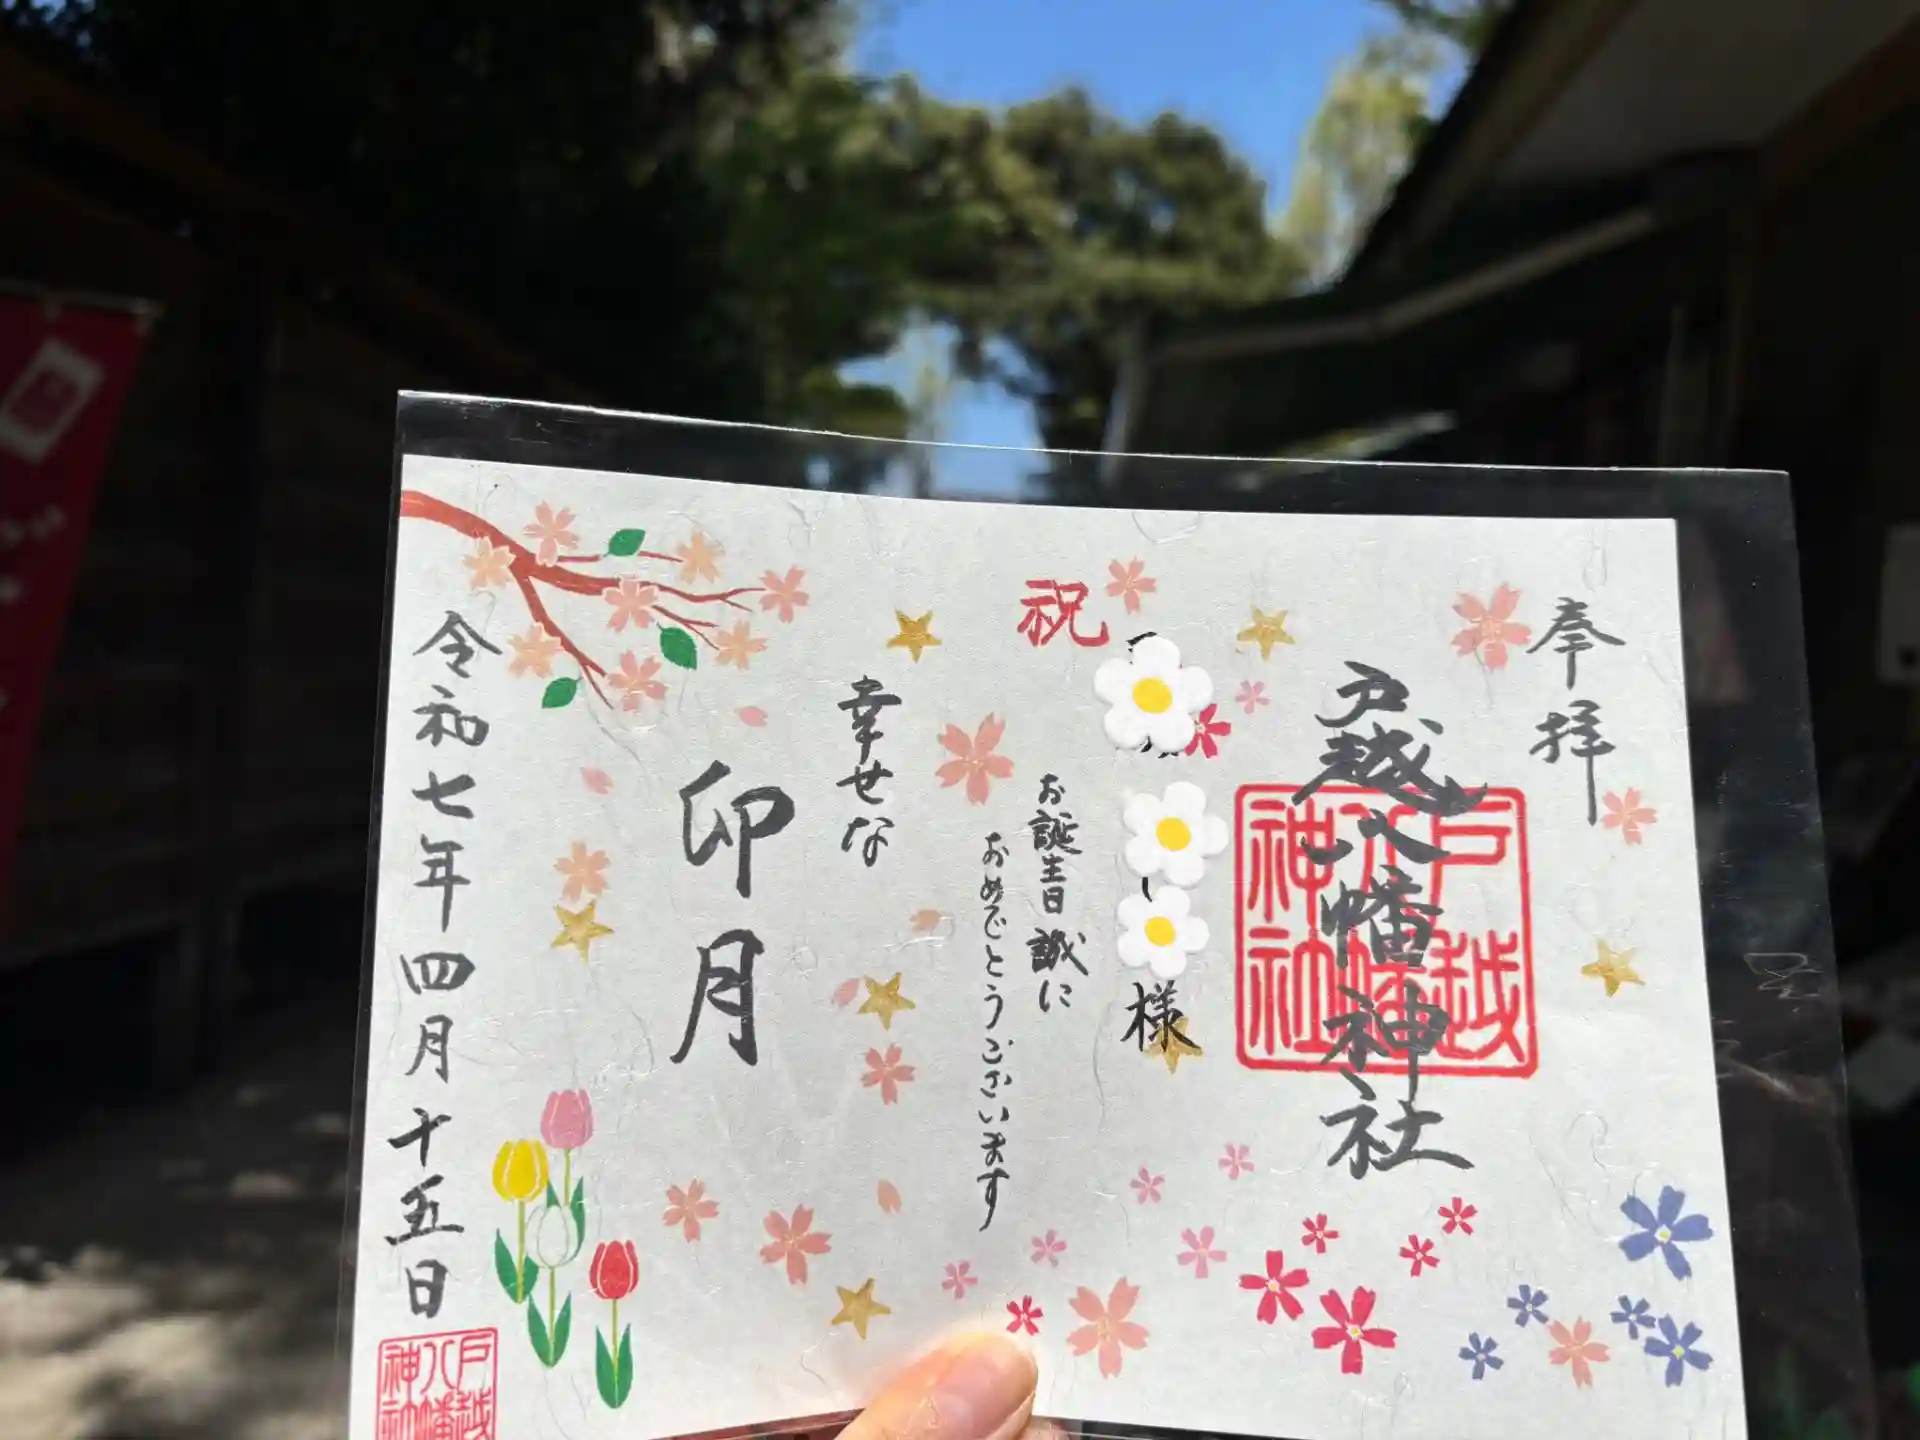 奉拝
戸越八幡神社
戸越
八幡
神社
祝
様
お誕生日誠に
おめでとうございます
幸せな
卯月
令和七年四月十五日
戸越
八幡
神社